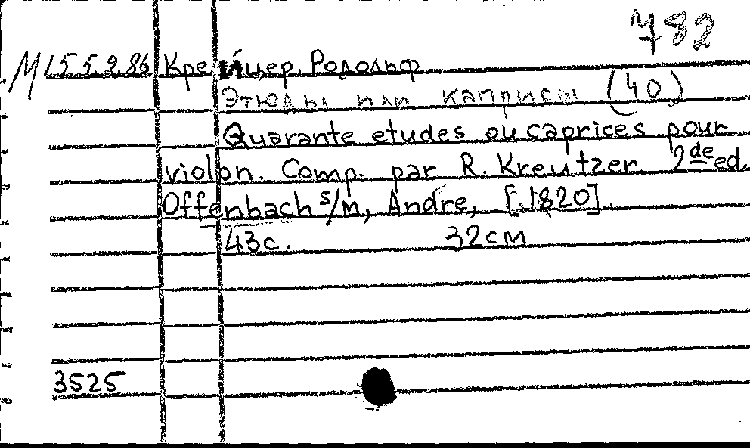 782
М 15.5.2.86 Крейцер, Родольф
Этюды или каприсы (40)
Quarante etudes ou caprices pour
violon. Comp. par R. Kreutzer. 2de ed.
Offenbach s/M, Andre, [1820].
43с. 32см
3525